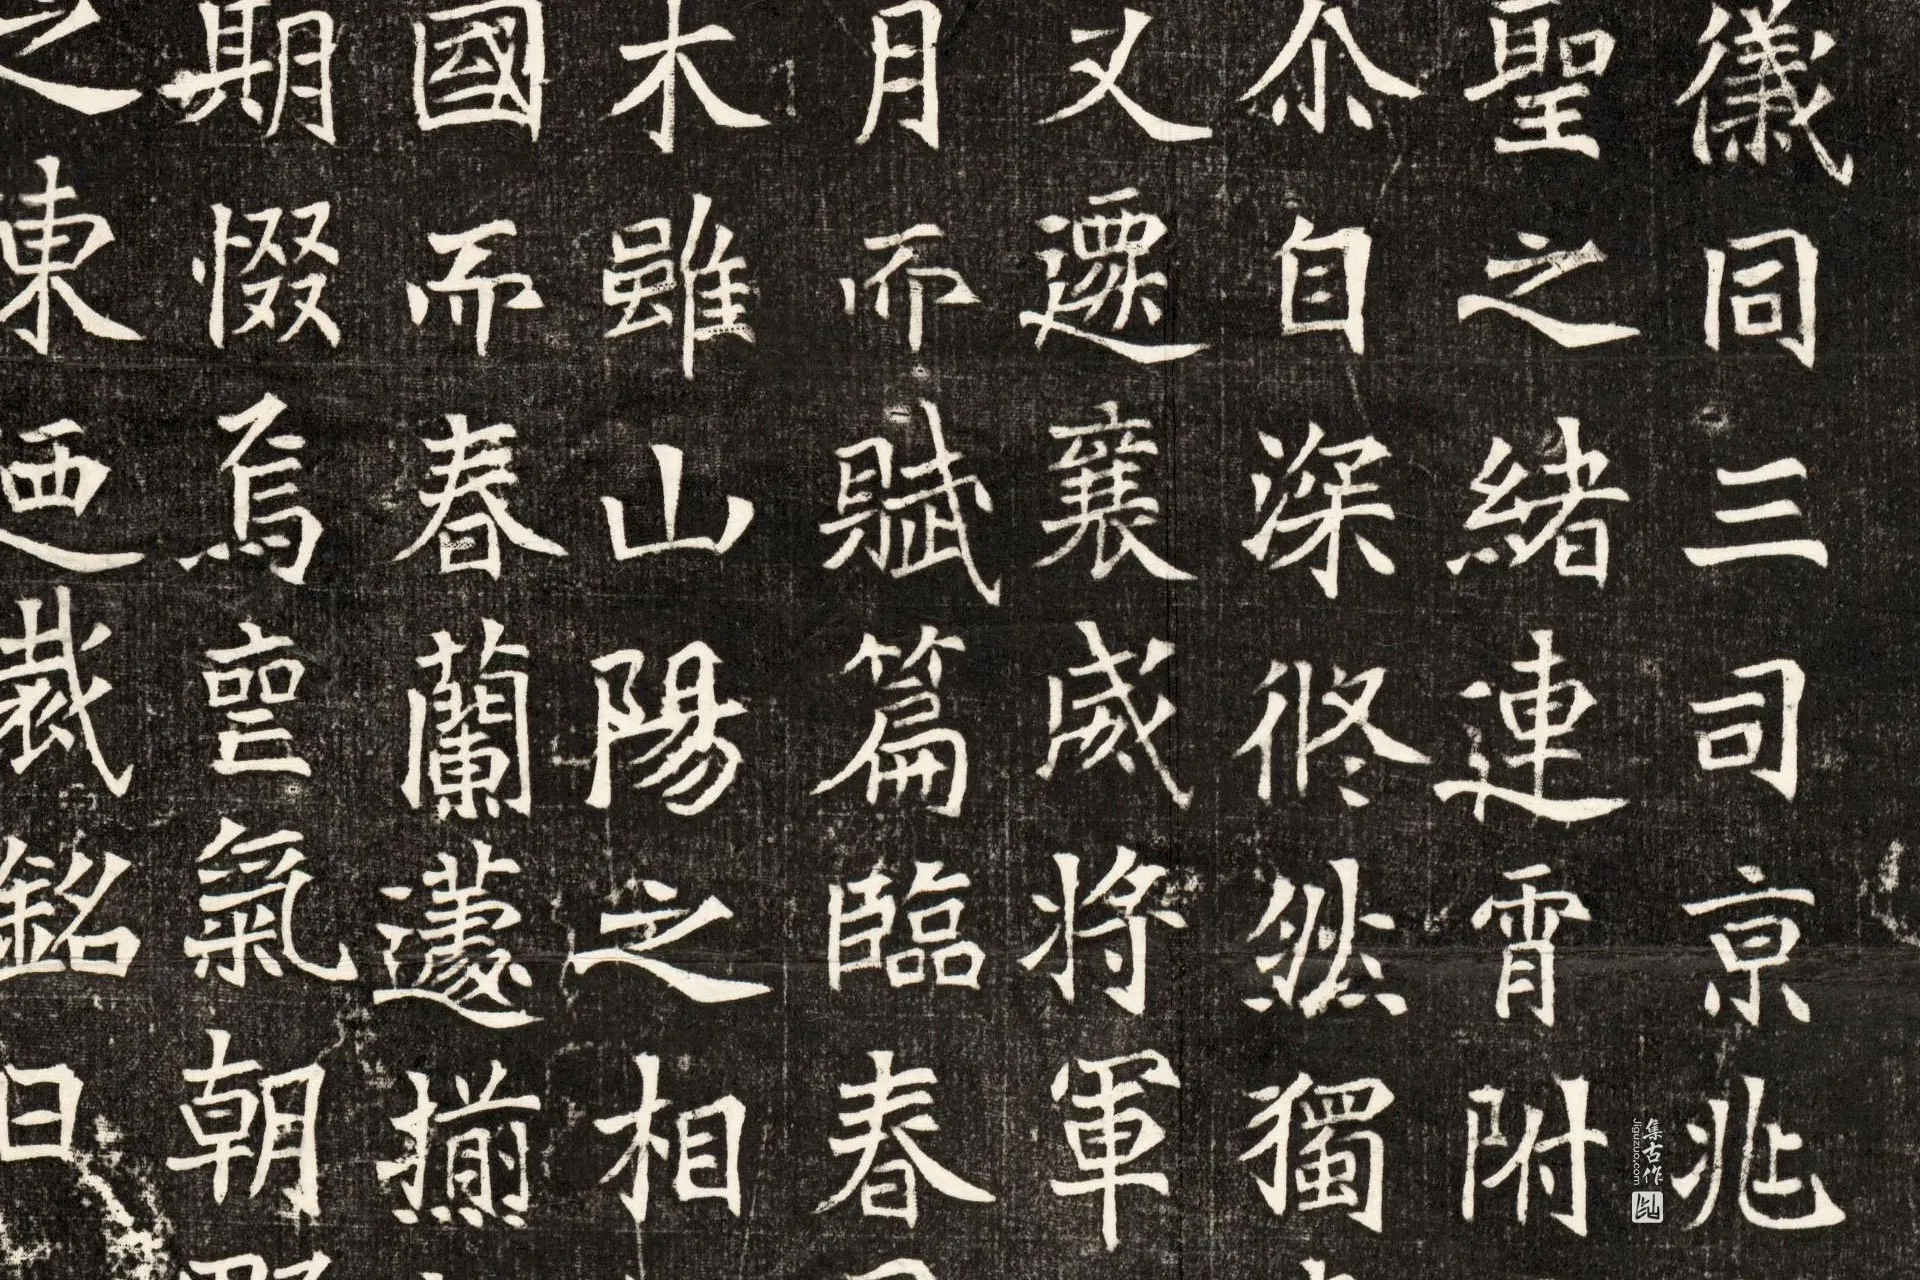 儀同三司京兆
聖之緒連霄附
介自深俢然獨
又遷襄威將軍
月而賦篇臨春
木雖山陽之相
國而春蘭蘧揃
期惙焉亶氣朝
之東迺裁銘曰
集古作
jiguzuo.com